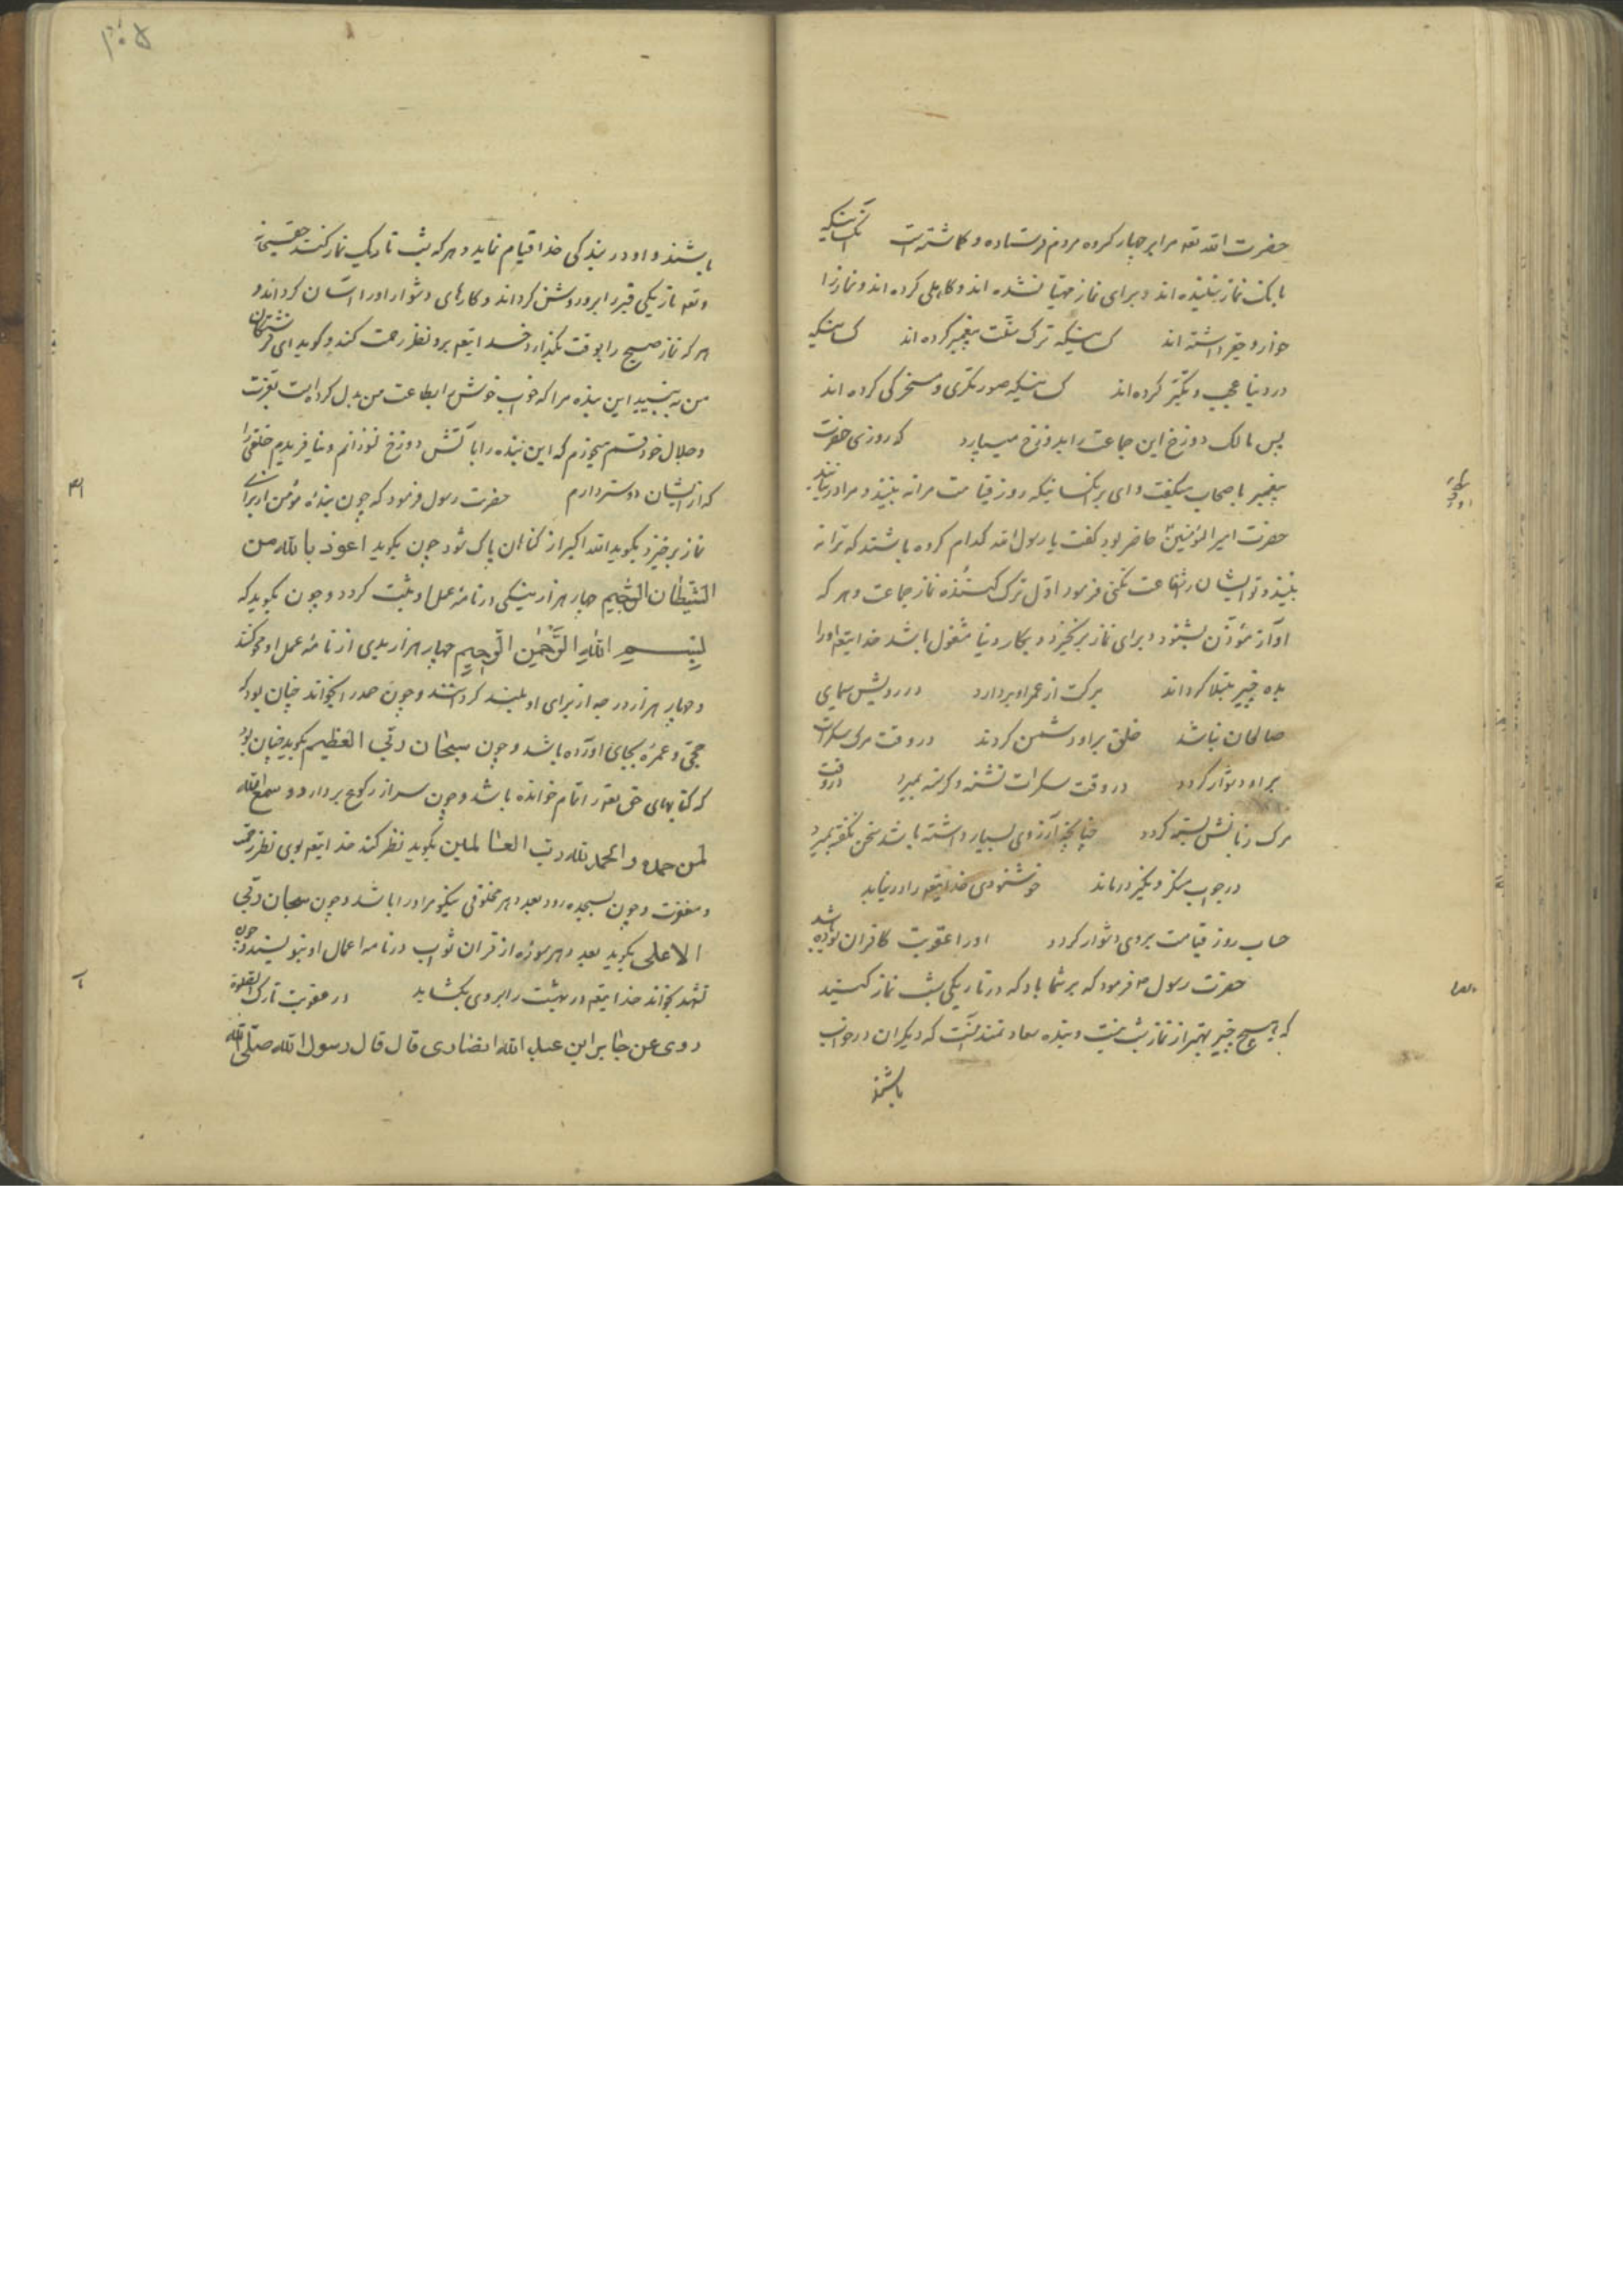 حضرت الله تعه مرا بر چهار کروه مردم فرستاده و کماشته است آنکسانیکه
بانک نماز شنیده اند و برای نماز مهیا نشده اند و کاهلی کرده اند و نماز را
خوار و حقیر داشته اند کسانیکه ترک سنّت پیغمبر کرده اند کسانیکه
در دنیا عجب و تکبّر کرده اند کسانیکه صورتکری و مسخرکی کرده اند
پس مالک دوزخ این جماعت را بدوزخ میسپارد که روزی حضرت
پیغمبر باصحاب میکفت وای بر آنکسانیکه روز قیامت مرا نه بینند و مرا در نیابند
حضرت امیر المؤمنین حاضر بود کفت یا رسول الله کدام کروه باشند که ترا نه
بینند و تو ایشان را شفاعت نکنی فرمود اوّل ترک کنندهٔ نماز جماعت و هر که
آواز مؤذّن بشنود و برای نماز برنخیزد و بکار دنیا مشغول باشد خدایتعه او را
بده چیز مبتلا کرداند برکت از عمر او بردارد در رویش سیمای
صالحان نباشد خلق بر او دشمن کردند در وقت مرک سکرات
بر او دشوار کردد در وقت سکرات تشنه و کرسنه بمیرد در وقت
مرک زبانش بسته کردد چنانچه آرزوی بسیار داشته باشد سخن نکفته بمیرد
در جواب منکر و نکیر درماند خوشنودی خدایتعه را در نیابد
حساب روز قیامت بروی دشوار کردد او را عقوبت کافران بوده باشد
حضرت رسول ص فرمود که بر شما باد که در تاریکی شب نماز کنید
که هیچ چیز بهتر از نماز شب نیست و بنده سعادتمند آنست که دیکران در خواب
باشند
باشند و او در بندکی خدا قیام نماید و هر که شب تاریک نماز کند حقسبحانه
و تعه تاریکی قبر را برو روشن کرداند و کارهای دشوار او را آسان کرداند و
هر که نماز صبح را بوقت بکذارد خدایتعه برو نظر رحمت کند و کوید ای فرشتکان
من به بینید این بنده مرا که خواب خوش را بطاعت من بدل کرده است بعزت
و جلال خود قسم میخورم که این بنده را بآتش دوزخ نسوزانم و نیافریدم خلقی را
که از ایشان دوستر دارم حضرت رسول فرمود که چون بندهٔ مؤمن از برای
نماز برخیزد بکوید الله اکبر از کناهان پاک شود چون بکوید اعوذ بالله من
الشیطان الرجیم چهار هزار نیکی در نامهٔ عمل او ثبت کردد و چون بکوید که
بسم الله الرّحمن الرّحیم چهار هزار بدی از نامهٔ عمل او محو کنند
و چهار هزار درجه از برای او بلند کردانند و چون حمد را بخواند چنان بود که
حجّی و عمرهٔ بجای آورده باشد و چون سبحان ربّی العظیم بکوید چنان بود
که کتابهای حق تعه را تمام خوانده باشد و چون سر از رکوع بردارد و سمع الله
لمن حمده و الحمد لله ربّ العالمین بکوید نظر کند خدایتعه بوی نظر رحمت
و مغفرت و چون بسجده رود بعدد هر مخلوقی نیکوئی او را باشد و چون سبحان ربّی
الاعلی بکوید بعدد هر سورهٔ از قران ثواب در نامه اعمال او بنویسند و چون
تشهد بخواند خدایتعه در بهشت را بروی بکشاید در عقوبت تارک الصلوة
روی عن جابر ابن عبد الله انصاری قال قال رسول الله صلّی الله